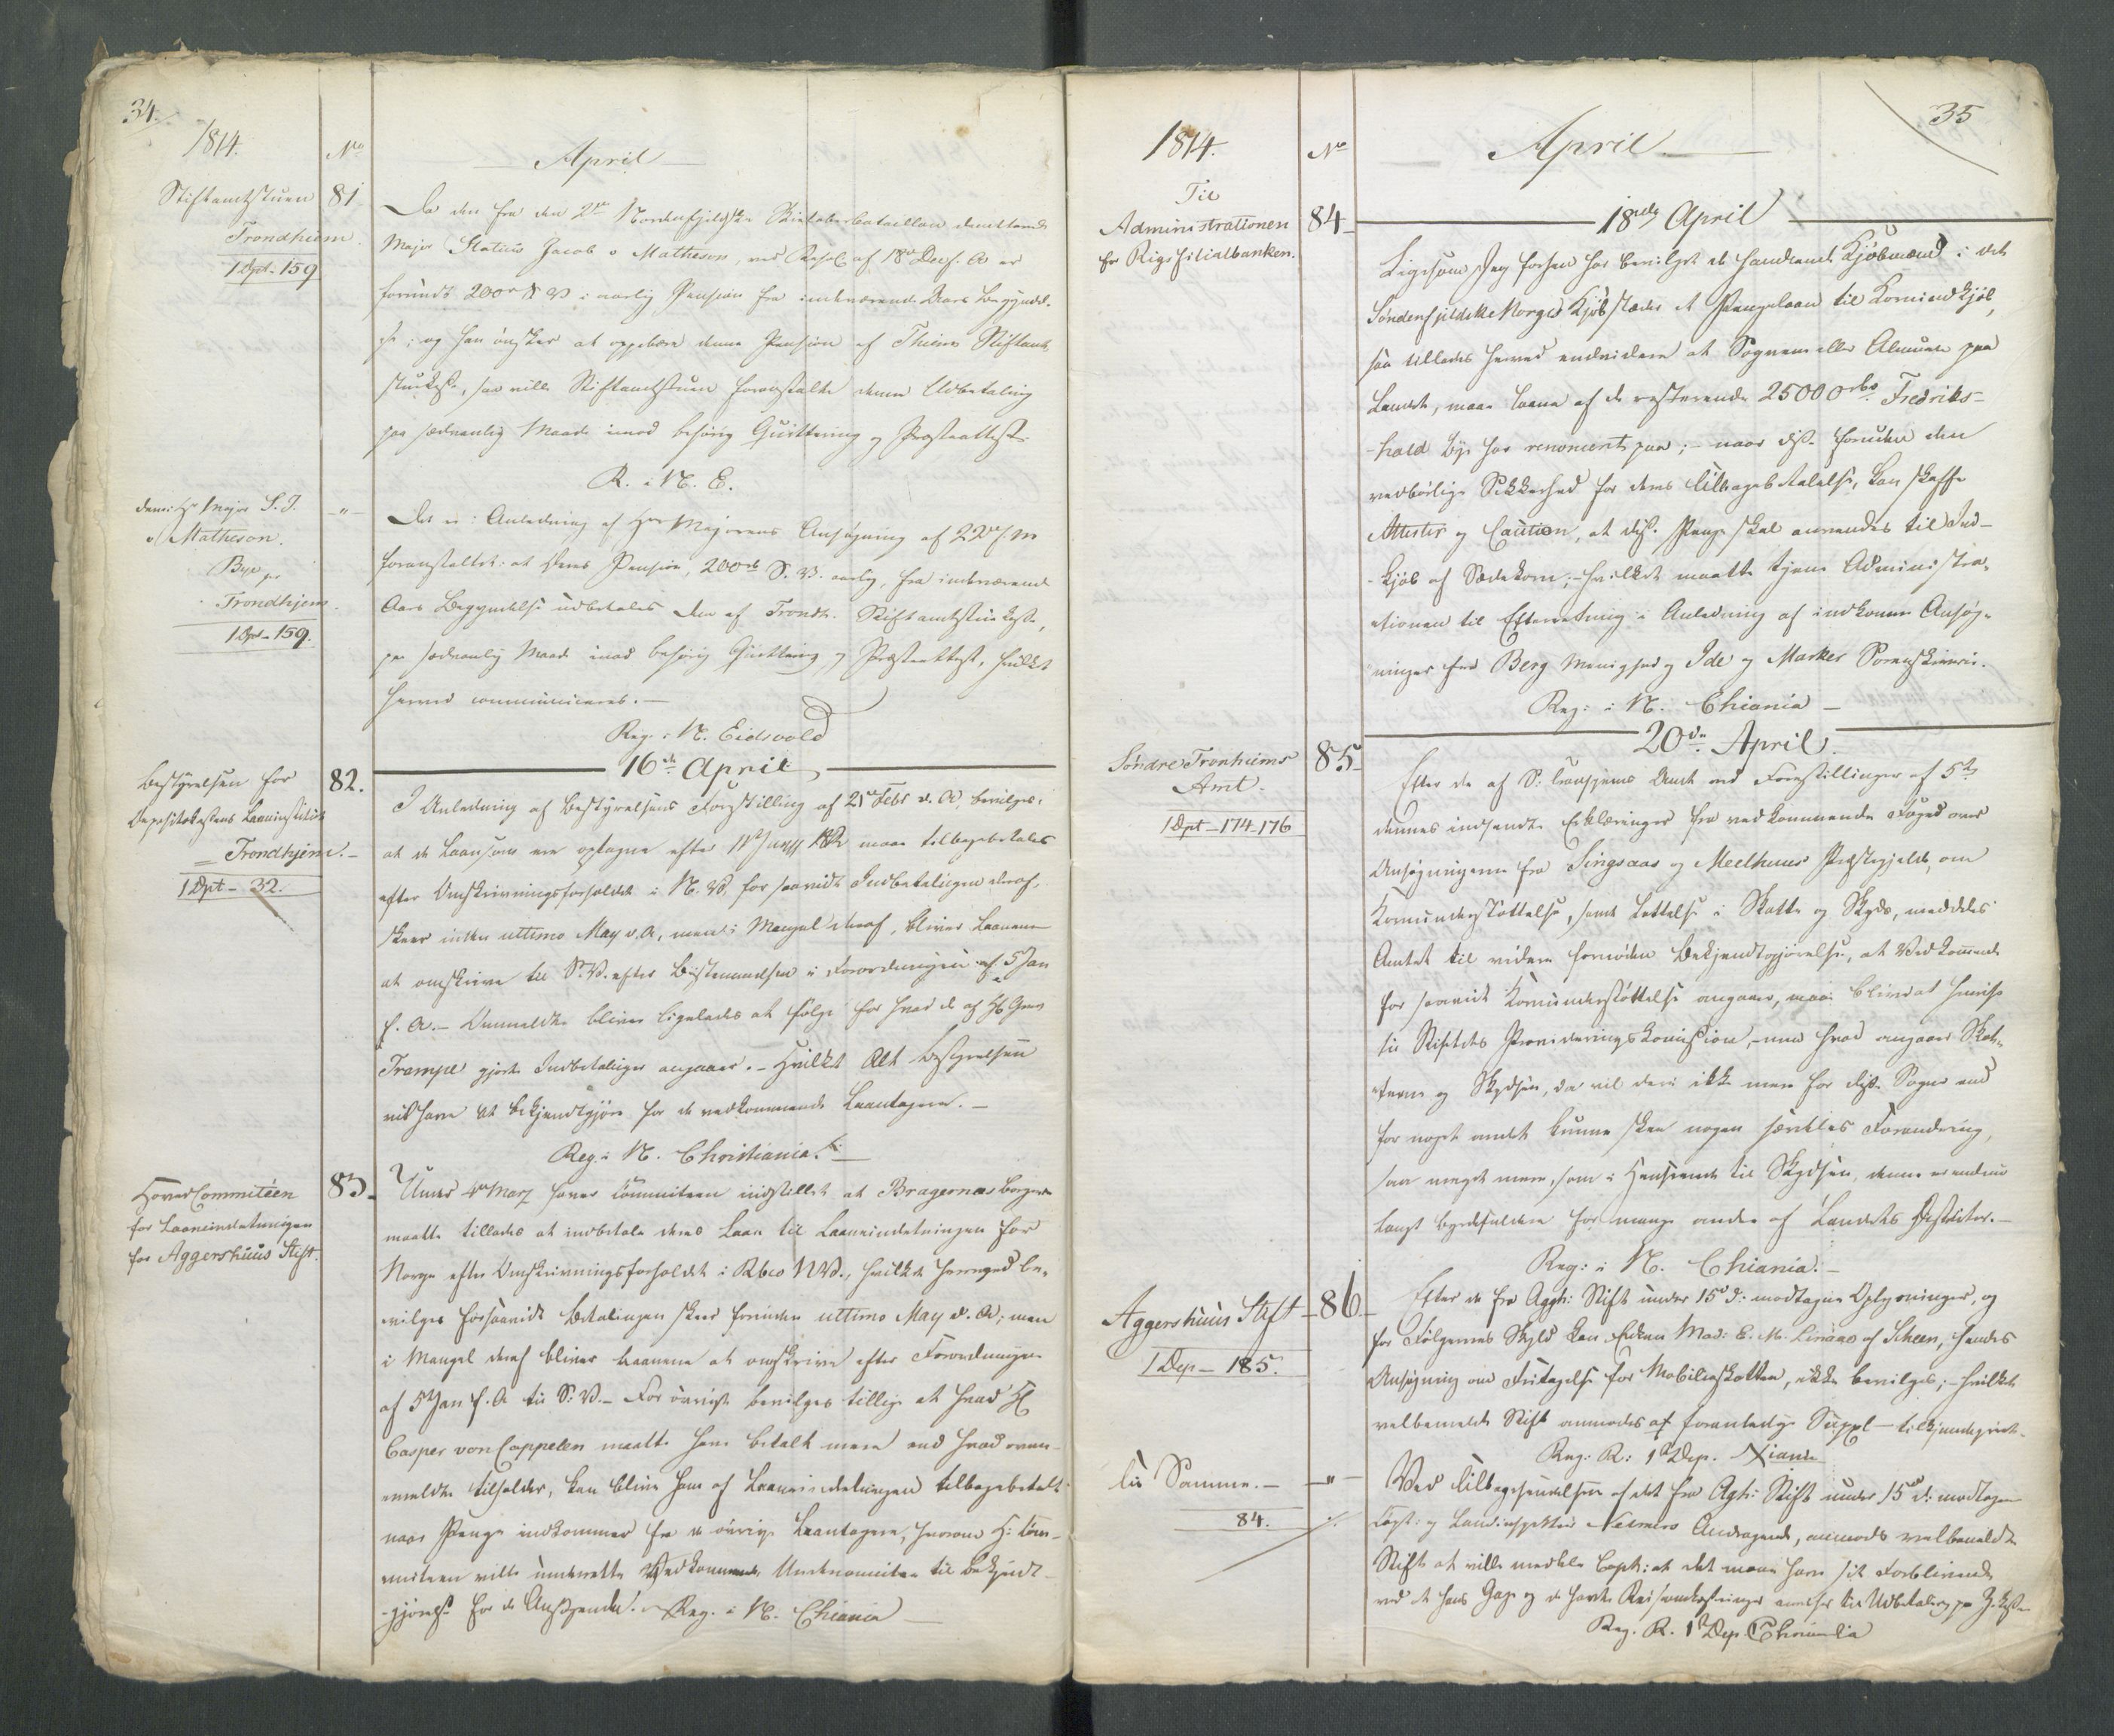 34.
1814.
No
April
Stiftamtstuen
Trondhiem.
1 Dpt. 159
81
Da den fra den 2den Nordenfjeldske Skieløberbataillon dimitterede
Major Statius Jacob v Matheson, ved Resol. af 18de Decbr. f. A er
forundt 200 S V i aarlig Pension fra indeværende Aars Begyndel-
se; og han ønsker at oppebære denne Pension af Thiems Stiftamt-
stuekasse, saa ville Stiftamtstuen foranstalte denne Udbetaling
paa sædvanlig Maade imod behørig Quittering og Præsteattest.
R. i N. E.
dem: Hr Major S. J.
v Matheson.
Bye pr
Trondhjem.
1 Dpt - 159.
- " -
Det er i Anledning af Hrr Majorens Ansøgning af 22de f. M
foranstaltet: at Deres Pension, 200 rb S. V. aarlig, fra indeværende
Aars Begyndelse udbetales Dem af Trondh. Stiftamtstuekasse,
paa sædvanlig Maade imod behørig Quittering og Præsteattest, hvilket
herved communiceres. —
Reg. i N. Eidsvold
16de April
Bestyrelsen for
Depositokassens Laaneinstitut
= Trondhjem. -
1 Dpt - 32.
82.
I Anledning af Bestyrelsens Forestilling af 21de Febr d. A, bevilges:
at de Laan som ere optagne efter maae tilbagebetales
efter Omskrivningsforholdet i N. V. for saavidt Indbetalingen deraf
skeer inden ultimo May d. A, men i Mangel deraf, bliver Laanene
at omskrive til S. V. efter Bestemmelsen i Forordningen af 5 Jan
f. A. - Anmeldte bliver ligeledes at følge for hvad de af Hs Grev
Trampe gjorte Indbetalinger angaaer. - Hvilket Alt Bestyrelsen
vil have at bekjendtgjøre for de vedkommende Laantagere. —
Reg. i N. Christiania. —
HovedCommitéen
for Laaneindretningen
for Aggershuus Stift.
83.
Under 4de Marz haver Committeen indstillet at Bragernæs Borgere
maatte tillades at indbetale deres Laan til Laaneindretningen for
Norge efter Omskrivningsforholdet i Rbco N.V., hvilket herved be-
vilges forsaavidt Betalingen skeer forinden ultimo May d. A; men
i Mangel deraf bliver Laanene at omskrive efter Forordningen
af 5 Jan f. A til S. V. - For øvrigt bevilges tillige at hvad Hr
Casper von Cappelen maatte have betalt mere end hvad oven-
meldte tilholder, kan blive ham af Laaneindretningen tilbagebetalt
naar Penge indkommer fra de øvrige Laantagere, hvorom H: Com-
mitteen ville underrette Vedkommende Undercomitee til Bekjendt-
gjørelse for de Ansøgende. - Reg. i N. Chiania —
35
1814.
No
April. —
Til
Administrationen
for Rigsfilialbanken.
84
18de April
Ligesom Jeg forhen har bevilget et handlende Kjøbmænd i det
Søndenfjeldske Norges Kjøbstæder et Pengelaan til Kornindkjøb,
saa tillades herved endvidere at Sognene eller Almuen paa
Landet, maae laane af de resterende 25000 rbd. Fredriks-
hald Bye har renonceret paa; - naar disse foruden den
vedbørlige Sikkerhed for deres Tilbagebetalelse, kan skaffe
Attester og Caution, at disse Penge skal anvendes til Ind-
kjøb af Sædekorn; - hvilket maatte tjene Administra-
tionen til Efterretning i Anledning af indkomne Ansøg-
ninger fra Berg Menighed og Ide og Marker Sorenskriverie.
Reg: i N. Chiania —
20de April.
Søndre Tronhiems
Amt.
1 Dpt - 174-176
85
Efter de af S: Tronhjems Amt ved Forestillinger af 5te
dennes indsendte Erklæringer fra vedkommende Foged over
Ansøgningerne fra Singsaas og Meelhuus Præstegjeld, om
Kornunderstøttelse, samt Lettelse i Skatte og Skyds, meddeles
Amtet til videre fornøden Bekjendtgjørelse, at Vedkommende
for saavidt Kornunderstøttelse angaaer, maae blive at henvise
til Stiftets Provideringskomission, - men hvad angaaer Skat-
terne og Skydsen, da vil deri ikke mere for disse Sogne end
for noget andet kunne skee nogen særdeles Forandring,
saa meget mere, som i Henseende til Skydsen, denne er endnu
langt byrdefuldere for mange andre af Landets Distrikter. —
Reg: i N. Chiania. —
Aggershuus Stift
1 Dep - 185.
86
Efter de fra Aggh: Stift under 15de d: modtagne Oplysninger, og
for Følgernes Skyld kan Enken Mad: E. M. Linaae af Scheen, hendes
Ansøgning om Fritagelse for Mobilieskatten, ikke bevilges; - hvilket
velbemeldte Stift anmodes af foranledige Suppl - tilkjendegivet.
Reg: R: 1ste Dep. Xiania
til Samme. —
84.
- " -
Ved Tilbagesendelsen af det fra Agh: Stift under 15de d: modtagne
Capt: og Landinspekteur Andragende, anmodes velbemeldte
Stift at ville meddele Capt: at det maae have sit Forblivende
ved at hans Gage og de havde Reiseomkostninger anvises til Udbetaling paa Z.kasse
Reg. R. 1ste Dep. Christiania